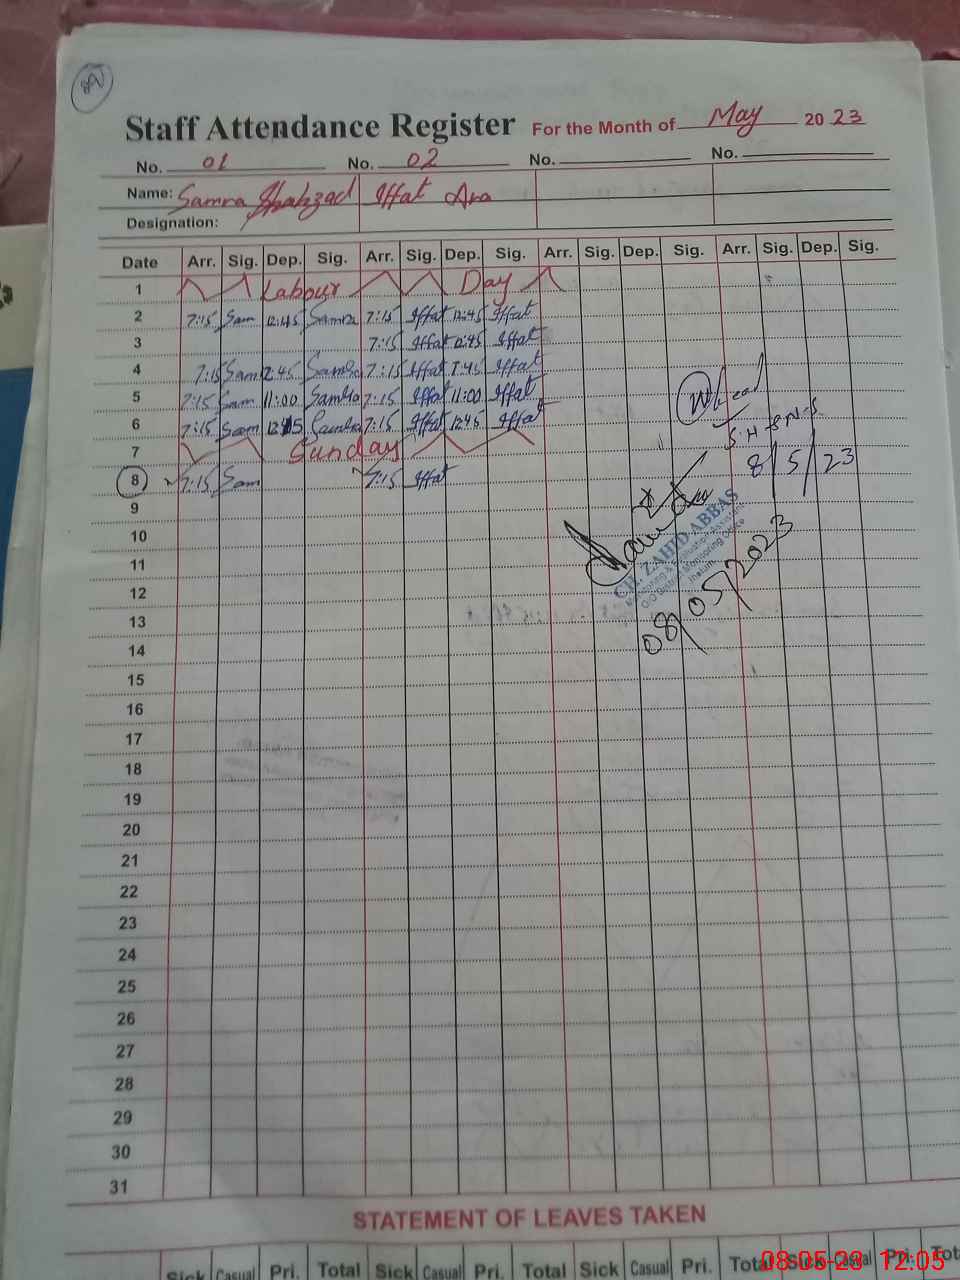 Staff Attendance Register For the Month of May 2023
No. 01 No. 02 No. No.
Name: Samra Shahzad Iffat Ara
Designation:
Date Arr. Sig. Dep. Sig. Arr. Sig. Dep. Sig. Arr. Sig. Dep. Sig. Arr. Sig. Dep. Sig.
1 Labour Day
2 7:15 Sam 12:45 Samra 7:15 Iffat 12:45 Iffat
3 7:15 Iffat 12:45 Iffat
4 7:15 Sam 12:45 Samra 7:15 Iffat Iffat
5 7:15 Sam 11:00 Samra 7:15 Iffat 11:00 Iffat
6 7:15 Sam 12:45 Samra 7:15 Iffat 12:45 Iffat
7 Sunday
8 7:15 Sam 7:15 Iffat
8/5/23
9
10
11
CH. ZAHID ABBAS
Monitoring & Evaluation Assistant
O/O District Monitoring Office
Jhelum
08/05/2023
12
13
14
15
16
17
18
19
20
21
22
23
24
25
26
27
28
29
30
31
STATEMENT OF LEAVES TAKEN
Sick Casual Pri. Total Sick Casual Pri. Total Sick Casual Pri. Total Sick Casual Pri. Tot
08-05-23 12:05